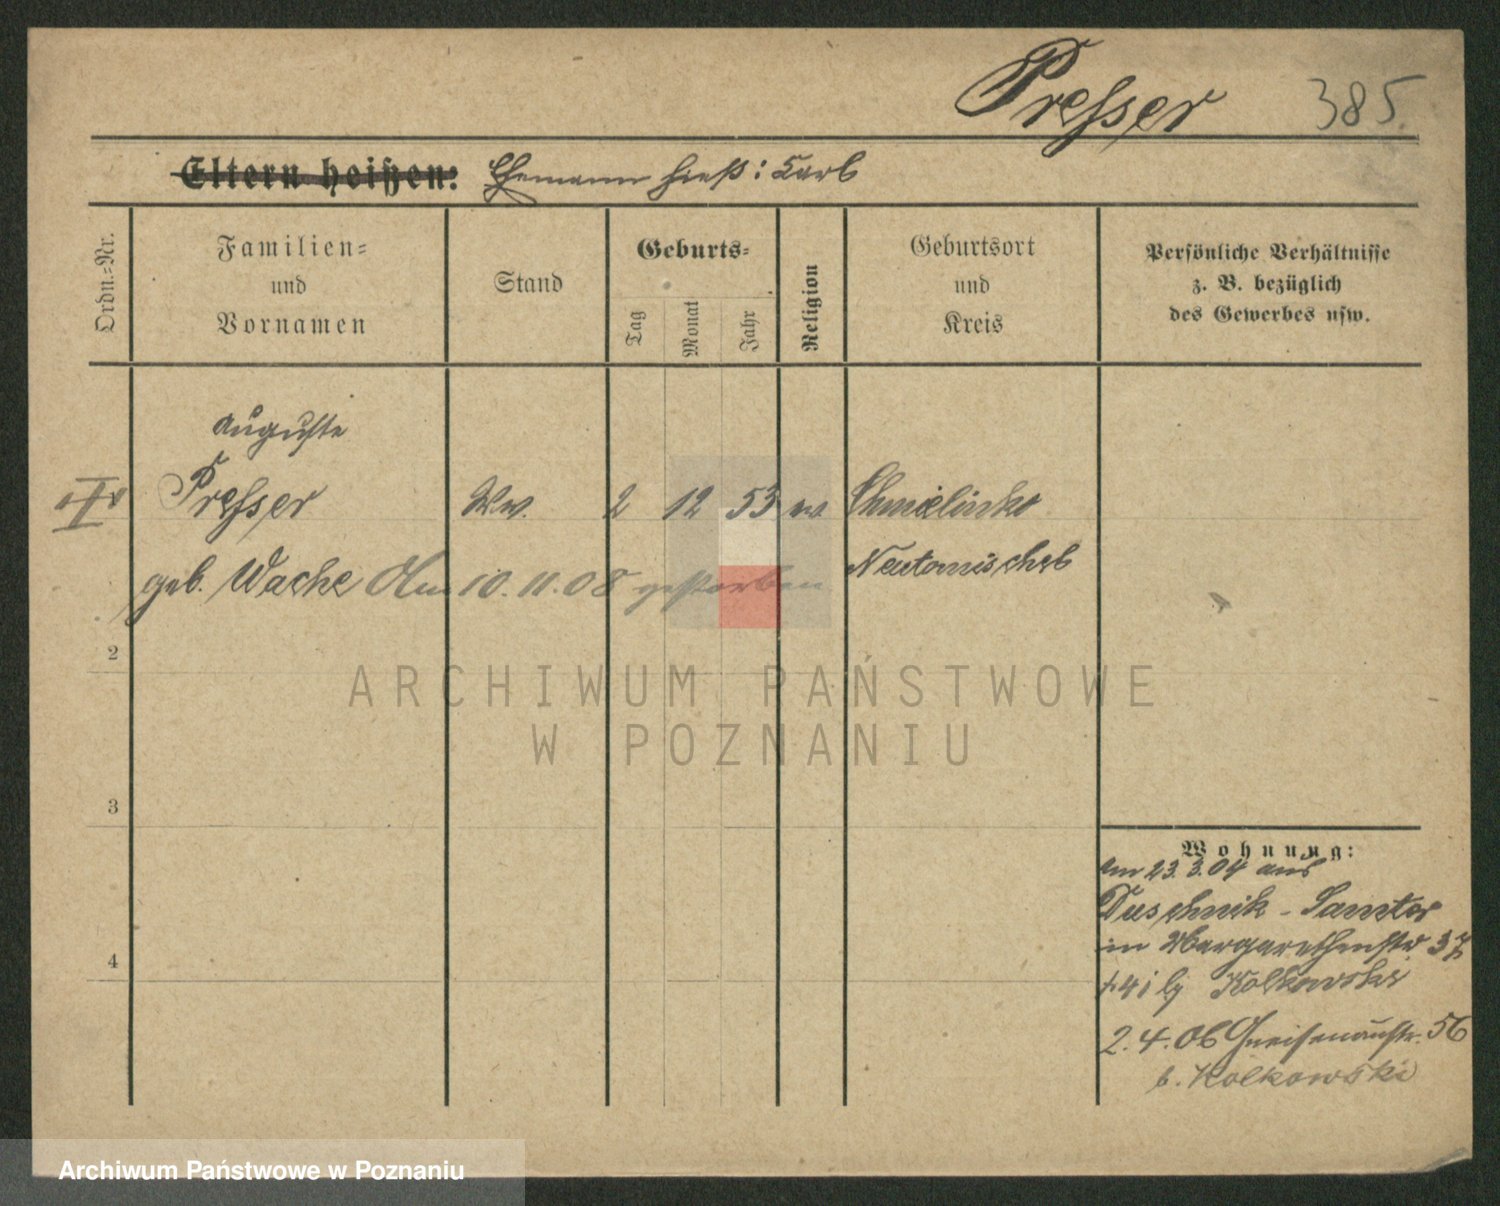 Presser 385.
Eltern heißen: Ehemann hieß: Karl
Ordn.=Nr.
Familien=
und
Vornamen
Stand
Geburts=
Tag
Monat
Jahr
Religion
Geburtsort
und
Kreis
Persönliche Verhältnisse
z. B. bezüglich
des Gewerbes usw.
Auguste
Presser Ww. 2 12 53 ev. Chmielinko
geb. Wache Am 10.11.08 gestorben Neutomischel
2
3
4
Wohnung:
Am 23.3.04 aus
Duschnik - Samter
in Margarethenstr 37
Kolkowski
2.4.06 Gneisenaustr. 56
b. Kolkowski
ARCHIWUM PAŃSTWOWE
W POZNANIU
Archiwum Państwowe w Poznaniu